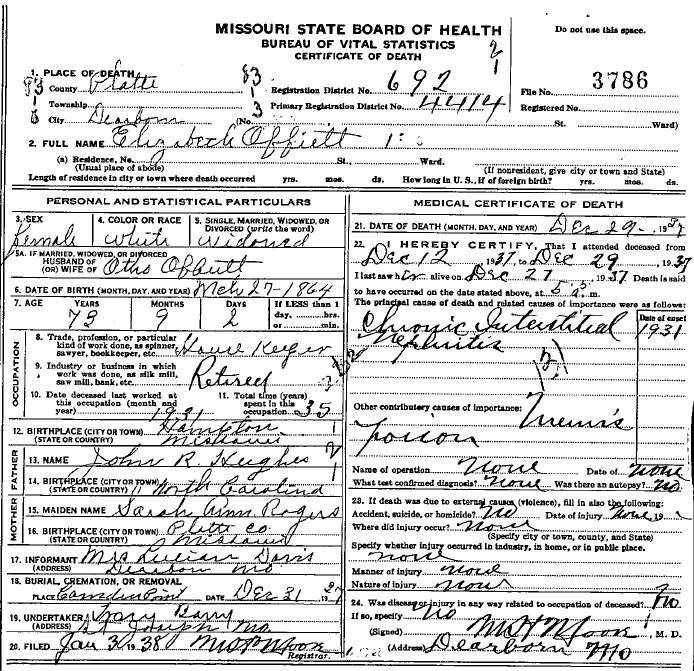 MISSOURI STATE BOARD OF HEALTH
BUREAU OF VITAL STATISTICS
CERTIFICATE OF DEATH
Do not use this space.
1. PLACE OF DEATH
County Platte 83 Registration District No. 692 File No. 3786
Township Primary Registration District No. 4414 Registered No.
City Dearborn (No. St. Ward)
2. FULL NAME Elizabeth Offutt
(a) Residence, No. St., Ward.
(Usual place of abode) (If nonresident, give city or town and State)
Length of residence in city or town where death occurred yrs. mos. ds. How long in U.S., if of foreign birth? yrs. mos. ds.
PERSONAL AND STATISTICAL PARTICULARS
3. SEX 4. COLOR OR RACE 5. SINGLE, MARRIED, WIDOWED, OR DIVORCED (write the word)
Female White Widowed
5A. IF MARRIED, WIDOWED, OR DIVORCED
HUSBAND OF
(OR) WIFE OF Otho Offutt
6. DATE OF BIRTH (MONTH, DAY, AND YEAR) Mch 27-1864
7. AGE YEARS MONTHS DAYS If LESS than 1
73 9 2 day, hrs.
or min.
OCCUPATION
8. Trade, profession, or particular kind of work done, as spinner, sawyer, bookkeeper, etc. House Keeper
9. Industry or business in which work was done, as silk mill, saw mill, bank, etc. Retired
10. Date deceased last worked at this occupation (month and year) 1931 11. Total time (years) spent in this occupation 35
12. BIRTHPLACE (CITY OR TOWN) Hampton
(STATE OR COUNTRY) Missouri
FATHER
13. NAME John R. Hughes
14. BIRTHPLACE (CITY OR TOWN)
(STATE OR COUNTRY) North Carolina
MOTHER
15. MAIDEN NAME Sarah Ann Rogers
16. BIRTHPLACE (CITY OR TOWN) Platte Co.
(STATE OR COUNTRY) Missouri
17. INFORMANT Mrs Lucian Davis
(ADDRESS) Dearborn Mo
18. BURIAL, CREMATION, OR REMOVAL
PLACE Camden Point DATE Dec 31 1937
19. UNDERTAKER Barry
(ADDRESS) St Joseph Mo.
20. FILED Jan 3 1938 Moon
Registrar.
MEDICAL CERTIFICATE OF DEATH
21. DATE OF DEATH (MONTH, DAY, AND YEAR) Dec 29 - 1937
22. I HEREBY CERTIFY, That I attended deceased from
Dec 12, 1937, to Dec 29, 1937
I last saw h er alive on Dec 27, 1937 Death is said
to have occurred on the date stated above, at m.
The principal cause of death and related causes of importance were as follows:
Date of onset
Chronic Interstitial 1931
Nephritis
131
Other contributory causes of importance: Uremic
poison
Name of operation none Date of none
What test confirmed diagnosis? none Was there an autopsy? no
23. If death was due to external causes (violence), fill in also the following:
Accident, suicide, or homicide? No Date of injury none 19
Where did injury occur? none
(Specify city or town, county, and State)
Specify whether injury occurred in industry, in home, or in public place.
none
Manner of injury none
Nature of injury none
24. Was disease or injury in any way related to occupation of deceased? No
If so, specify No
(Signed) Moon, M. D.
(Address) Dearborn Mo